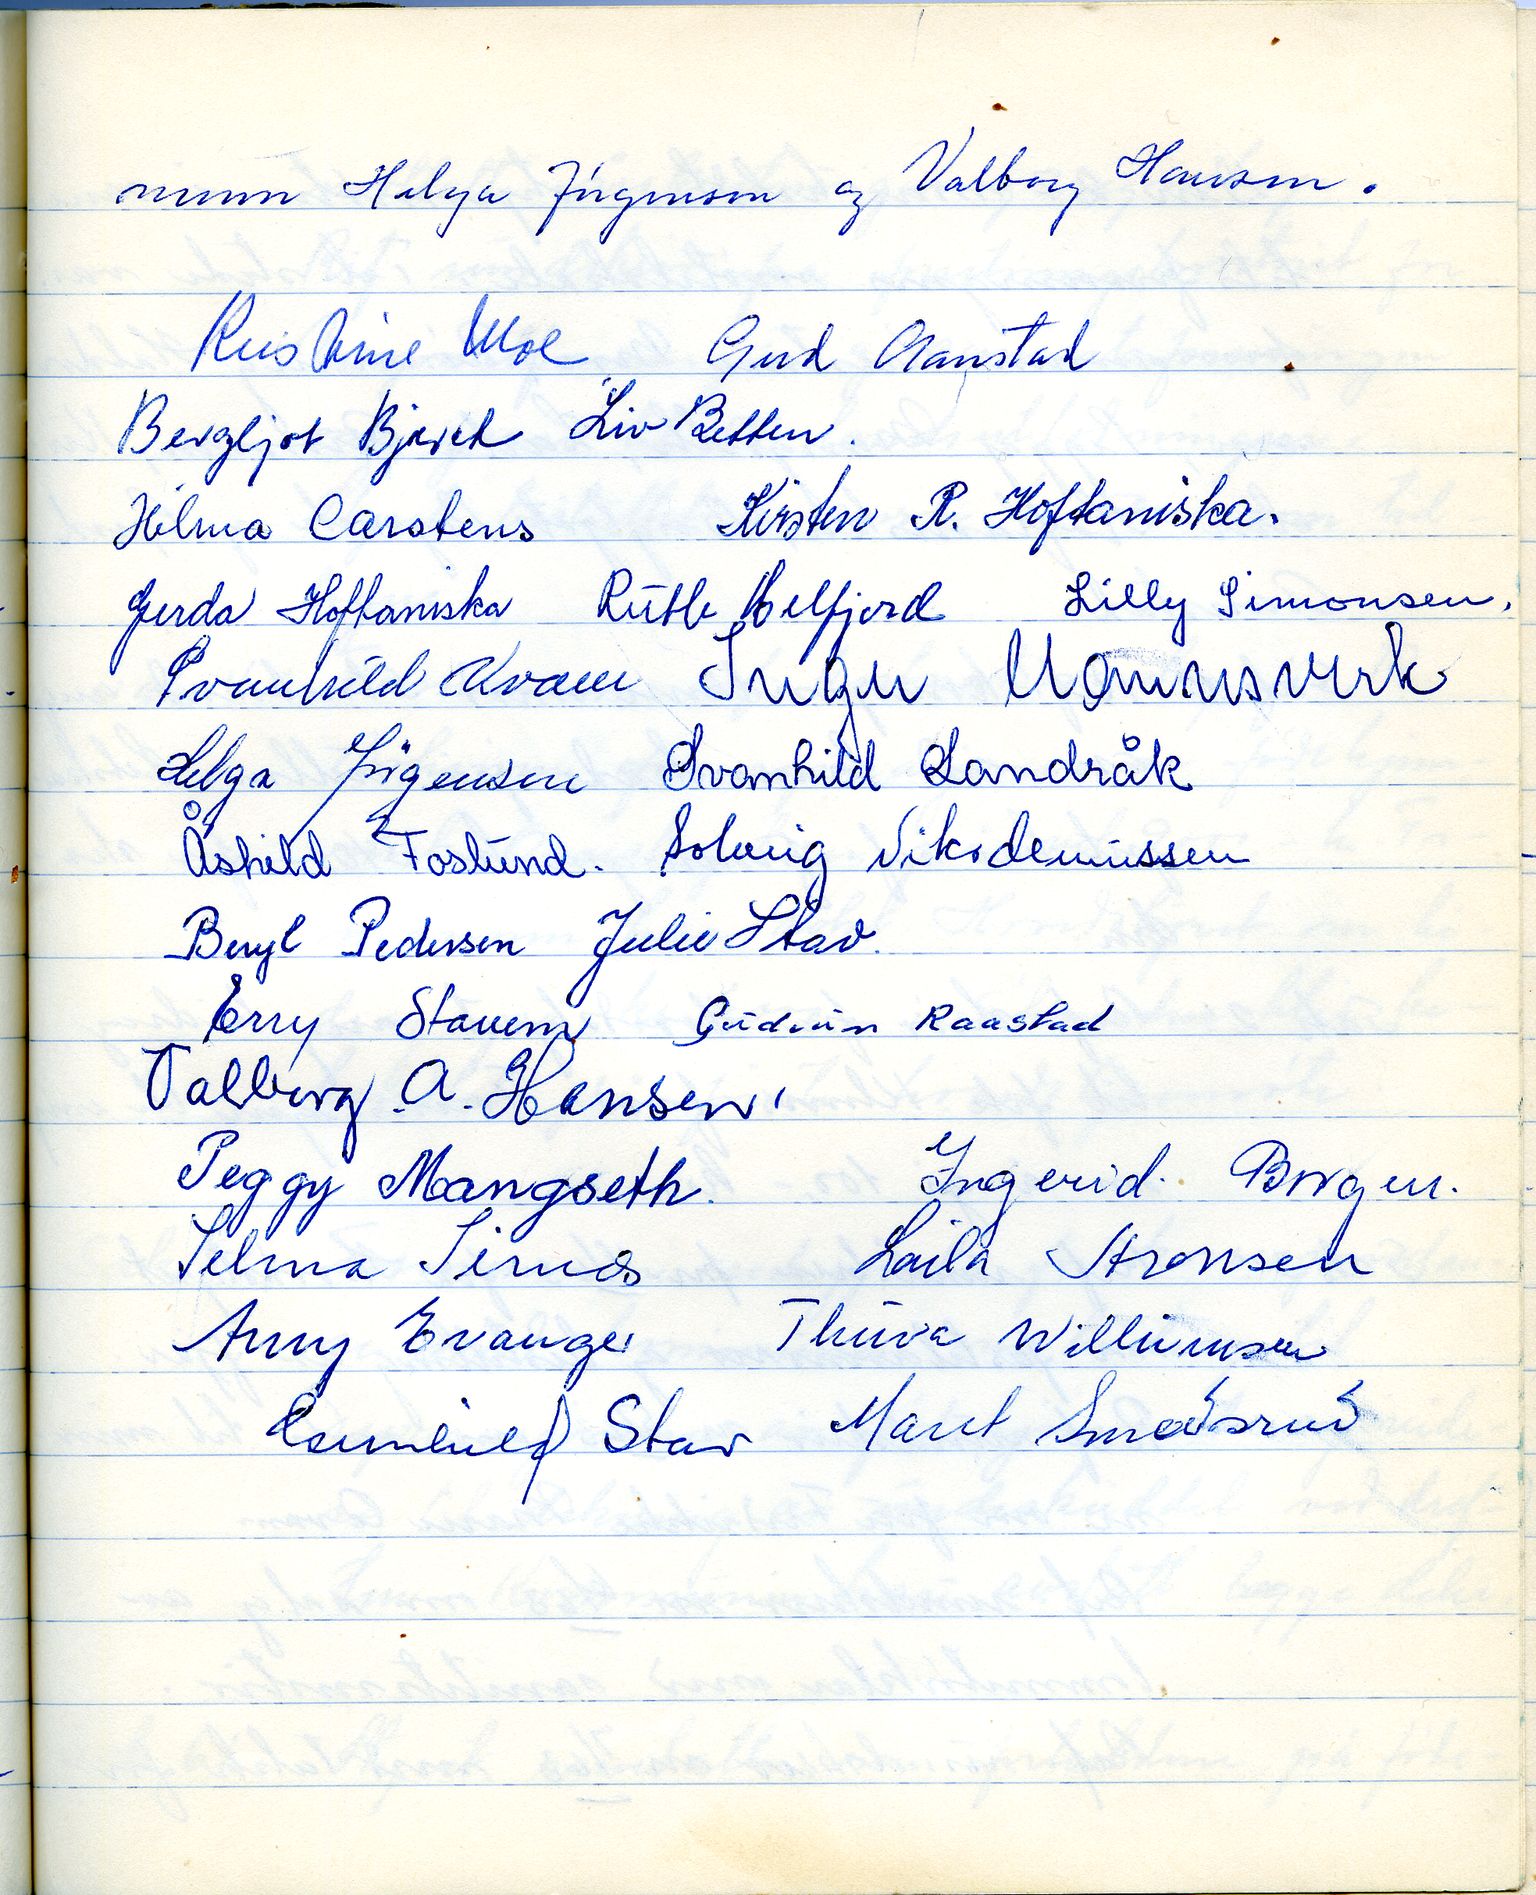 Helga Jörgensen og Valborg Hansen.
Kristine Moe Gerd Aanstad
Bergljot Bjerck Liv Betten.
Hilma Carstens Kirsten R. Hoftaniska.
Gerda Hoftaniska Ruth Melfjord Lilly Simonsen.
Svanhild Kvam Inger
Helga Jörgensen Svanhild Landråk
Åshild Foslund. Solveig Nikodemussen
Beryl Pedersen Julie Stav.
Erry Stavem Gudrun Raastad
Valborg A. Hansen.
Peggy Mangseth. Ingerid. Borgen.
Selma Sirnes Laila Aronsen
Anny Evanger Thura Williumsen
Stav Marit Smedsrud